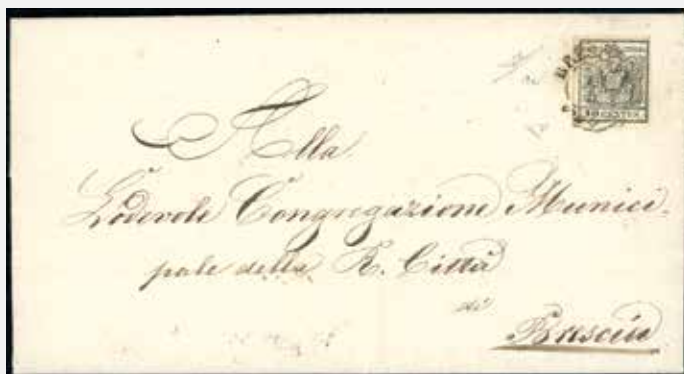 10 CENTES.
Alla
Lodevole Congregazione Munici-
pale della R. Città
di
Brescia